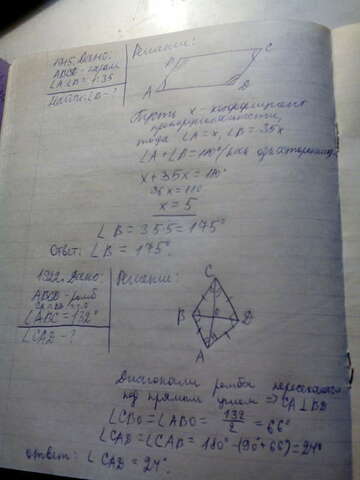 1915. Дано:
ABCD - парал.
∠A:∠B = 1:35
Найти: ∠B - ?
Решение:
B
C
A
D
Пусть x - коэффициент
пропорциональности,
тогда ∠A = x, ∠B = 35x
∠A + ∠B = 180°
x + 35x = 180°
36x = 180
x = 5
∠B = 35·5 = 175°
Ответ: ∠B = 175°.
1922. Дано:
ABCD - ромб
∠ABC = 132°
∠CAD - ?
Решение:
C
B
D
A
Диагонали ромба пересекаются
под прямым углом => CA ⊥ BD
∠CBO = ∠ABO = 132/2 = 66°
∠CAD = ∠CAB = 180° - (90° + 66) = 24°
Ответ: ∠CAD = 24°.